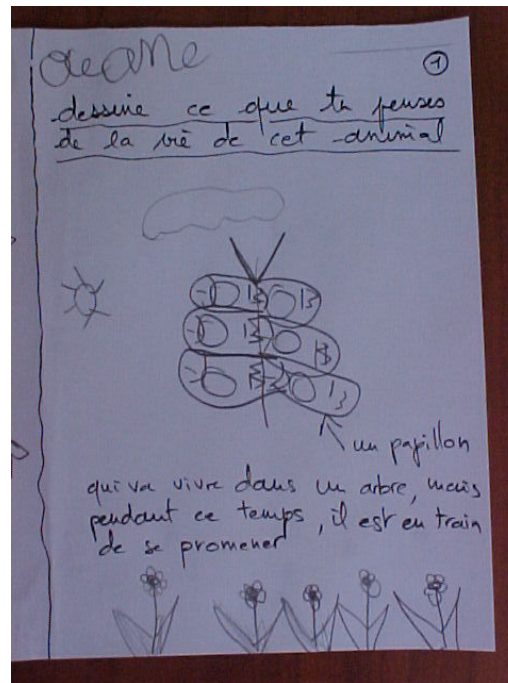 oceane
1
dessine ce que tu penses
de la vie de cet animal
un papillon
qui va vivre dans un arbre, mais
pendant ce temps, il est en train
de se promener